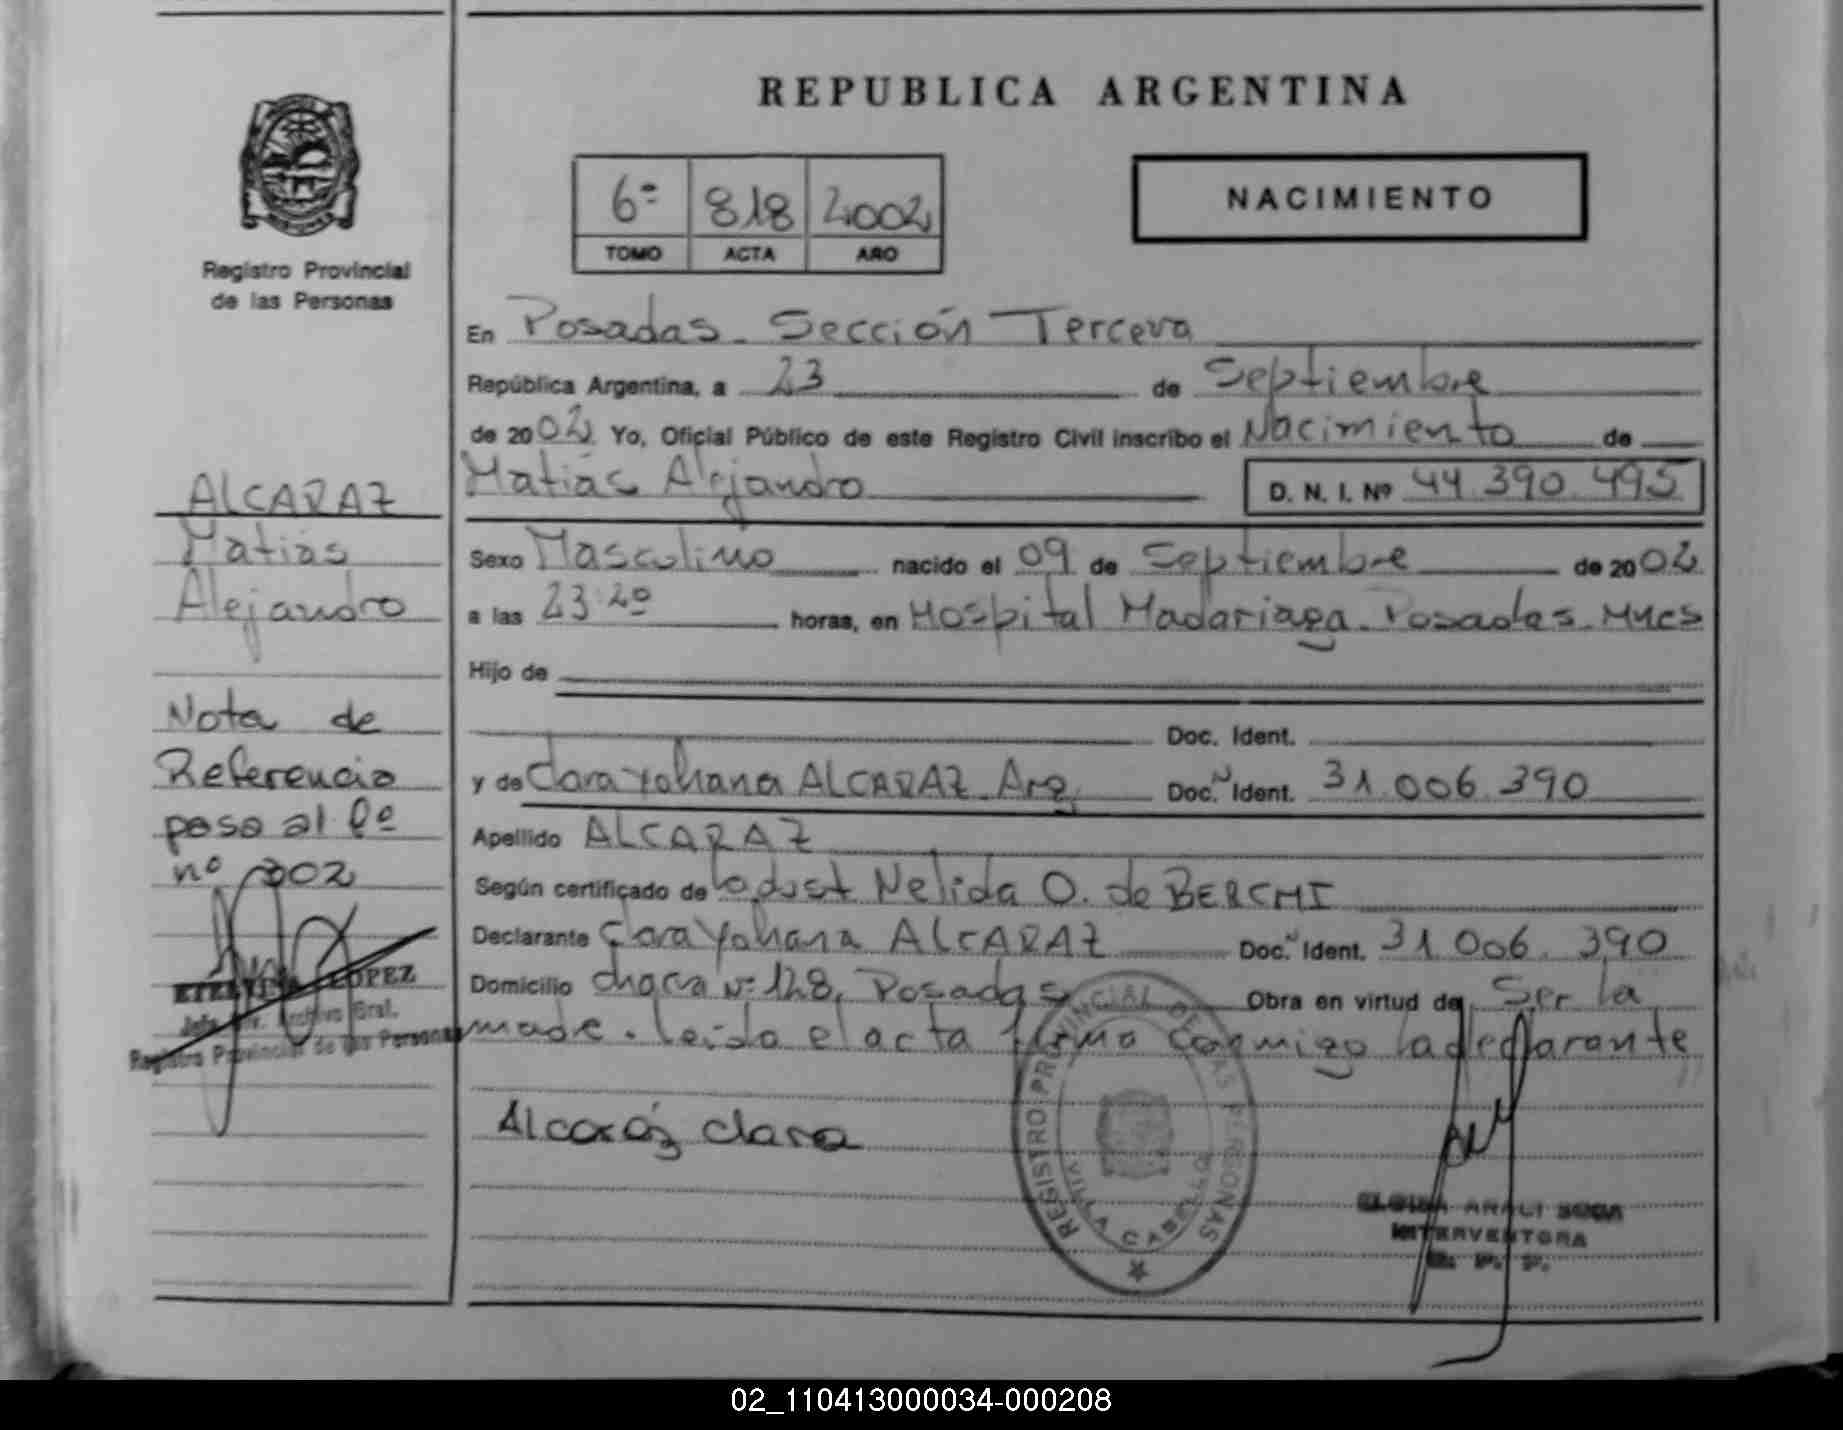 REPUBLICA ARGENTINA
6º 818 2002
TOMO ACTA AÑO
NACIMIENTO
Registro Provincial
de las Personas
En Posadas. Sección Tercera
República Argentina, a 23 de Septiembre
de 2002 Yo, Oficial Público de este Registro Civil inscribo el Nacimiento de
Matias Alejandro D. N. I. Nº 44.390.495
Sexo Masculino nacido el 09 de Septiembre de 2002
a las 23:20 horas, en Hospital Madariaga. Posadas. Mnes
Hijo de
Doc. Ident.
y de Clara Yohana ALCARAZ. Arg. Doc.N Ident. 31.006.390
Apellido ALCARAZ
Según certificado de Nelida O. de BERCHI
Declarante Clara Yohana ALCARAZ Doc.N Ident. 31.006.390
Domicilio chacra Nº 128, Posadas Obra en virtud de Ser la
madre. leida el acta firma conmigo la declarante
Alcaráz clara
ALCARAZ
Matias
Alejandro
Nota de
Referencia
paso al fº
nº 002
LOPEZ
Jefe Div. Archivo Gral.
Registro Provincial de las Personas
REGISTRO PROVINCIAL DE LAS PERSONAS
VILLA CABELLO
ARALI SOSA
INTERVENTORA
R. P. P.
02_110413000034-000208